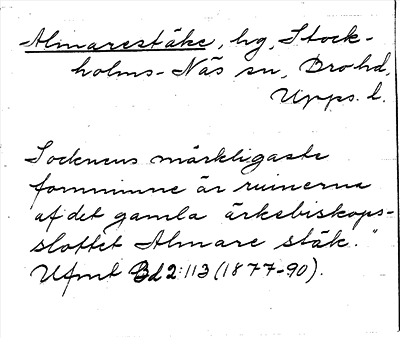 Almarestäke, hg, Stock-
holms-Näs sn, Bro hd,
Upps. l.
Socknens märkligaste
fornminne är ruinerna
af det gamla ärkebiskops-
slottet Almare stäk."
Ufmt Bd 2:113 (1877-90).